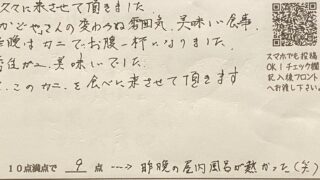 久々に来させて頂きました
かどやさんの変わらぬ雰囲気、美味しい食事、
昨晩はカニでお腹一杯になりました。
美味しいでした。
このカニを食べに来させて頂きます
スマホでも投稿
OK！チェック欄
記入後フロント
へお渡し下さい。
10点満点で 9 点 ---> 昨晩の屋内風呂が熱かった(笑)